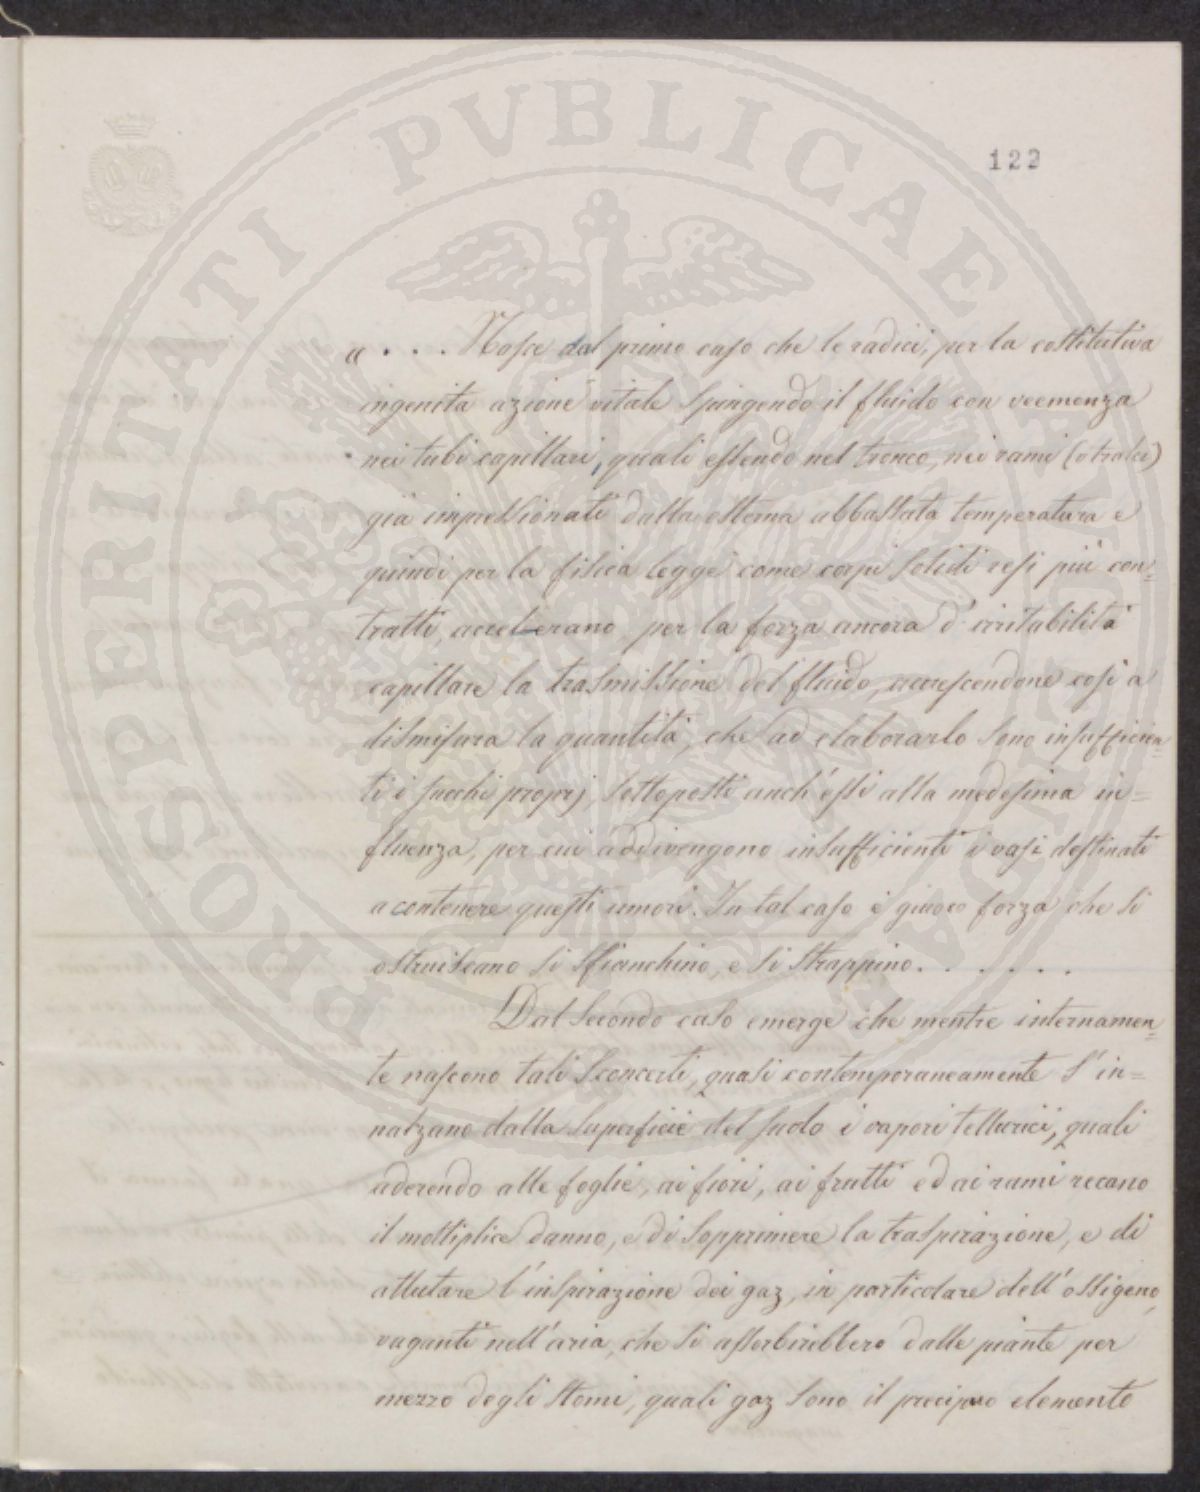 PROSPERITATI PUBLICAE AUGENDAE
122
« . . . Nasce dal primo caso che le radici, per la costitutiva
ingenita azione vitale spingendo il fluido con veemenza
nei tubi capillari, quali essendo nel tronco, nei rami (o tralci)
già impressionati dalla esterna abbassata temperatura e
quindi per la fisica legge come corpi solidi resi più con=
tratti, accelerano per la forza ancora d'irritabilità
capillare la trasmissione del fluido, accrescendone così a
dismisura la quantità, che ad elaborarlo sono insufficien=
ti i succhi proprj, sottoposti anch'essi alla medesima in=
fluenza, per cui addivengono insufficienti i vasi destinati
a contenere questi umori. In tal caso è giuoco forza che si
ostruiscano si sfianchino, e si strappino. . . . . . .
Dal secondo caso emerge che mentre internamen=
te nascono tali sconcerti, quasi contemporaneamente s'in=
nalzano dalla superficie del suolo i vapori tellurici, quali
aderendo alle foglie, ai fiori, ai frutti ed ai rami recano
il moltiplice danno, e di sopprimere la traspirazione, e di
attutare l'inspirazione dei gaz, in particolare dell'ossigeno,
vaganti nell'aria, che si assorbirebbero dalle piante per
mezzo degli stomi, quali gaz sono il precipuo elemento